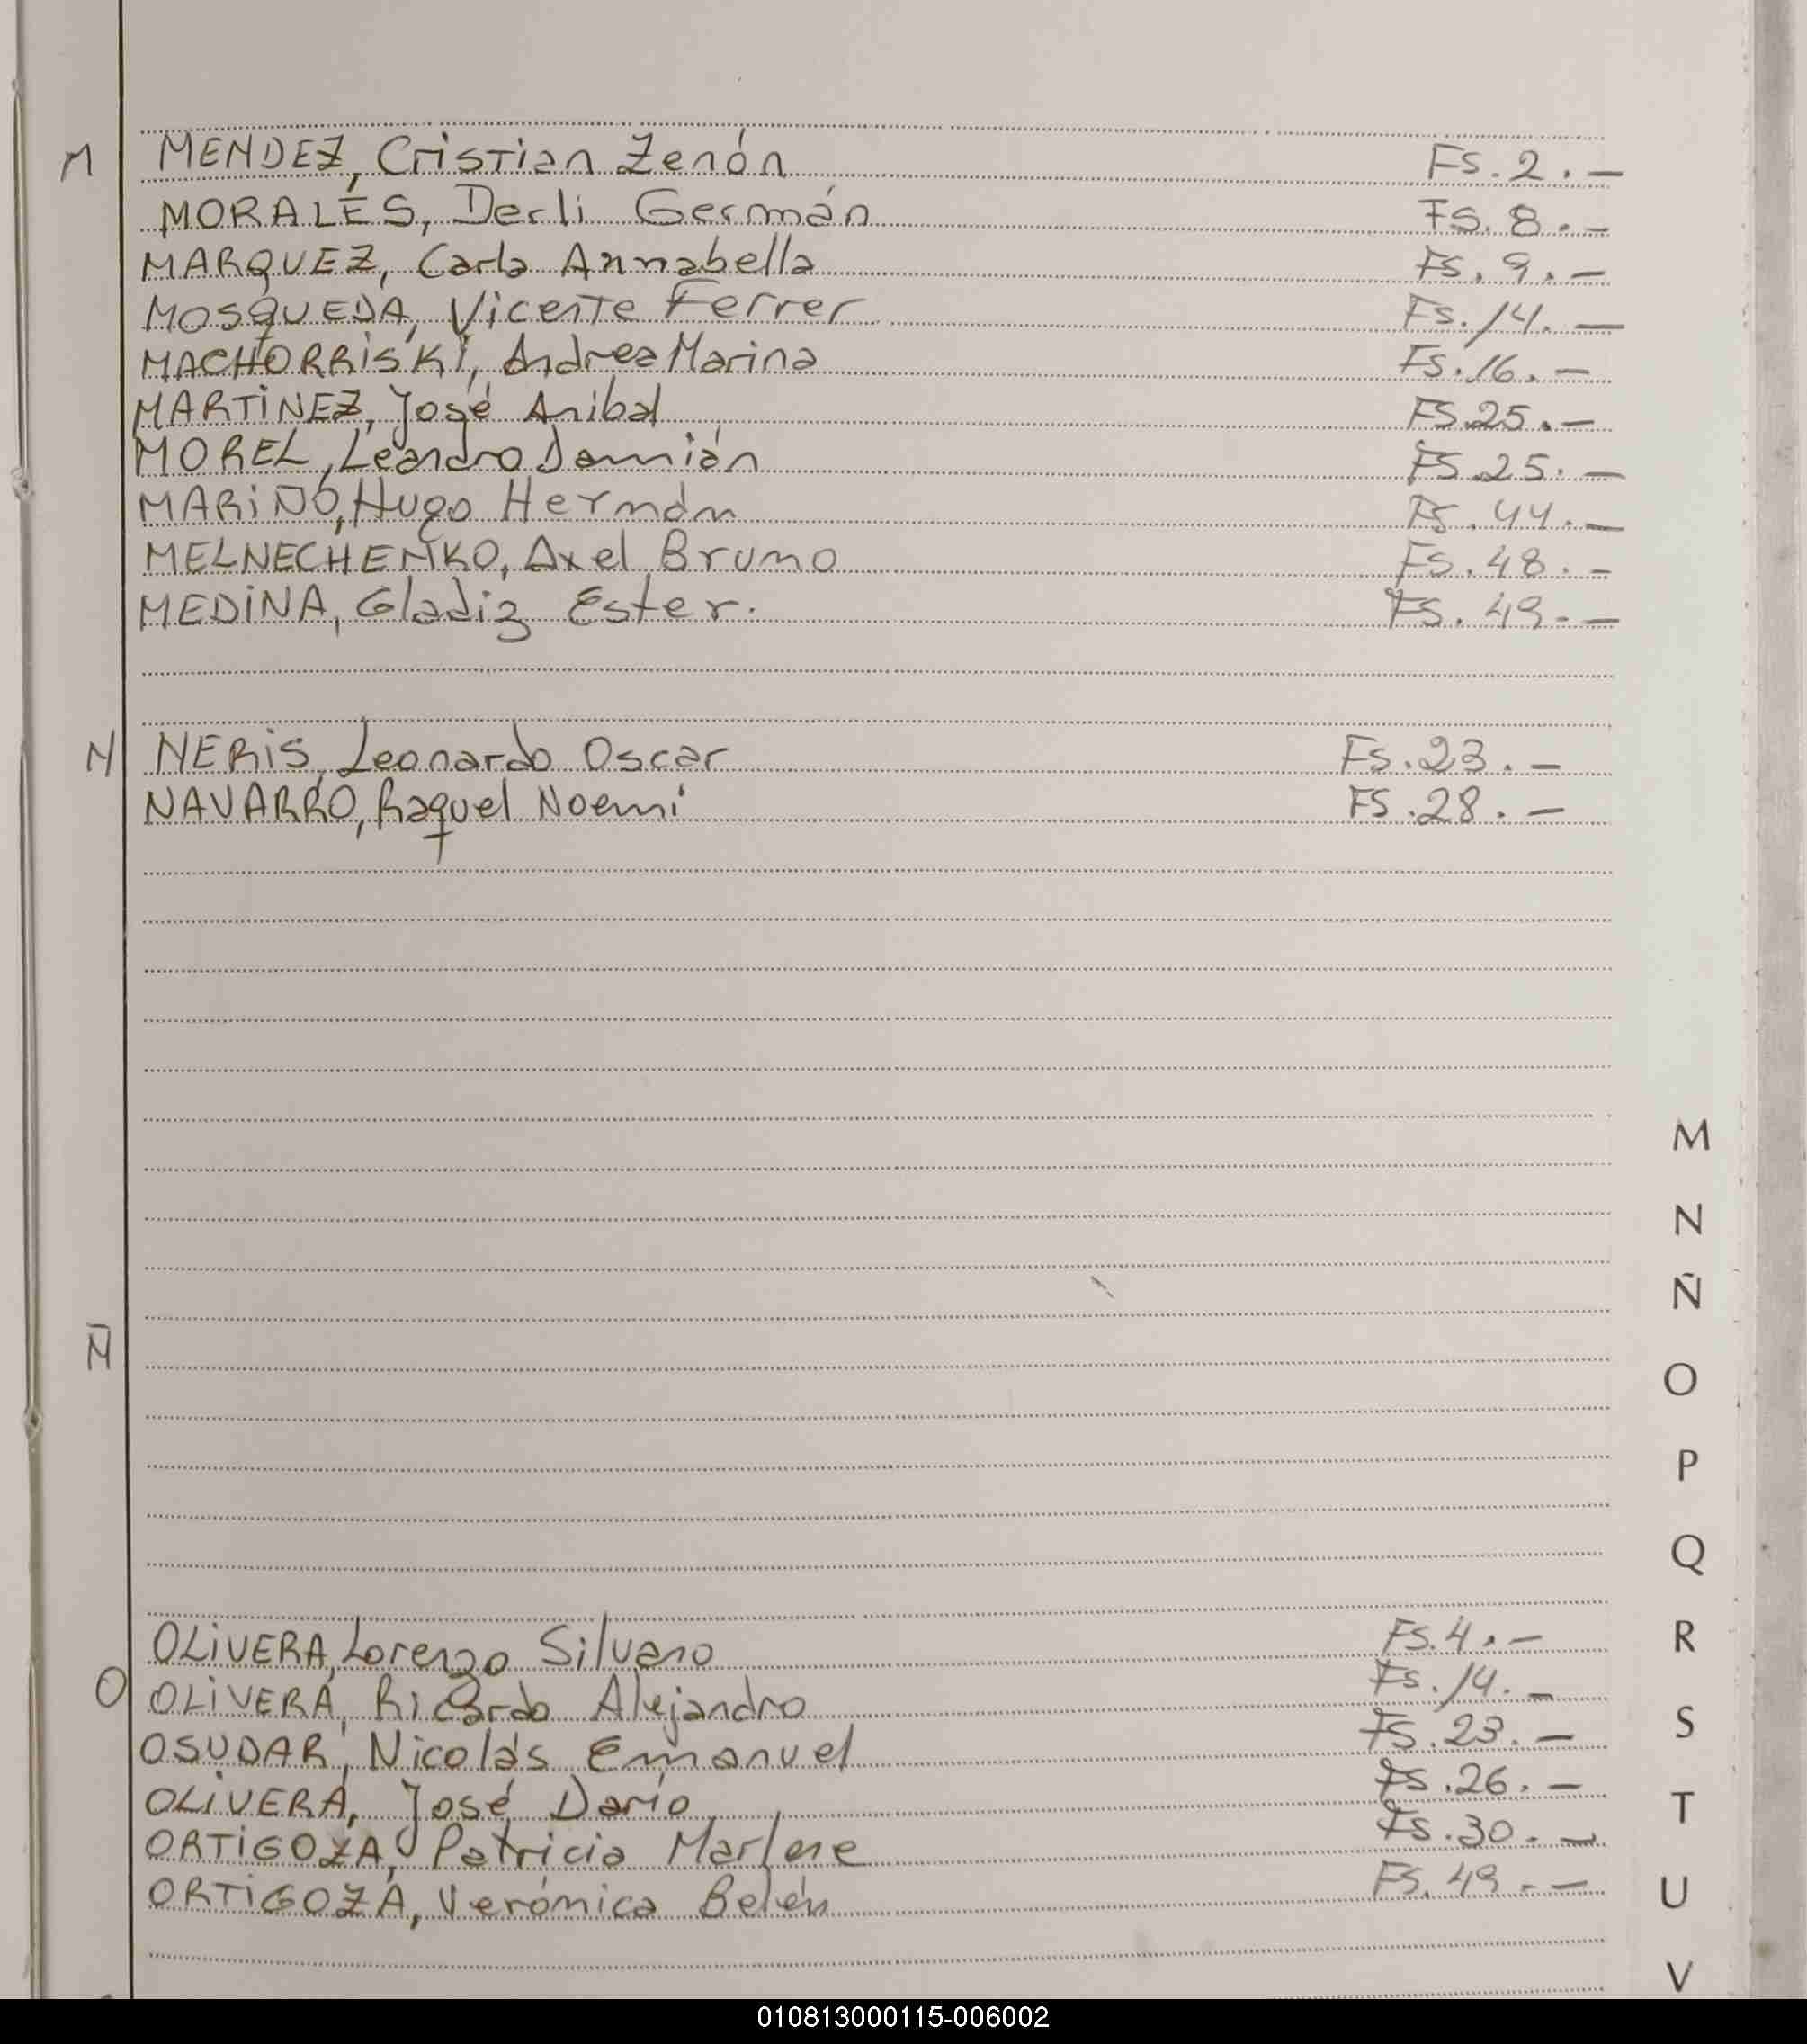 M MENDEZ, Cristian Zenón Fs. 2. —
MORALES, Derli Germán FS. 8. —
MARQUEZ, Carla Annabella Fs. 9. —
MOSQUEDA, Vicente Ferrer Fs. 14. —
MACHORRISKI, Andrea Marina Fs. 16. —
MARTINEZ, José Anibal FS. 25. —
MOREL, Leandro Damián FS. 25. —
MARIÑO, Hugo Hernán Fs. 44. —
MELNECHENKO, Axel Bruno Fs. 48. —
MEDINA, Gladiz Ester. FS. 49. —
N NERIS, Leonardo Oscar Fs. 23. —
NAVARRO, Raquel Noemi FS. 28. —
Ñ
OLIVERA, Lorenzo Silvano Fs. 4. —
O OLIVERA, Ricardo Alejandro Fs. 14. —
OSUDAR, Nicolás Emanuel Fs. 23. —
OLIVERA, José Darío Fs. 26. —
ORTIGOZA, Patricia Marlene Fs. 30. —
ORTIGOZA, Verónica Belén Fs. 49. —
M
N
Ñ
O
P
Q
R
S
T
U
V
010813000115-006002